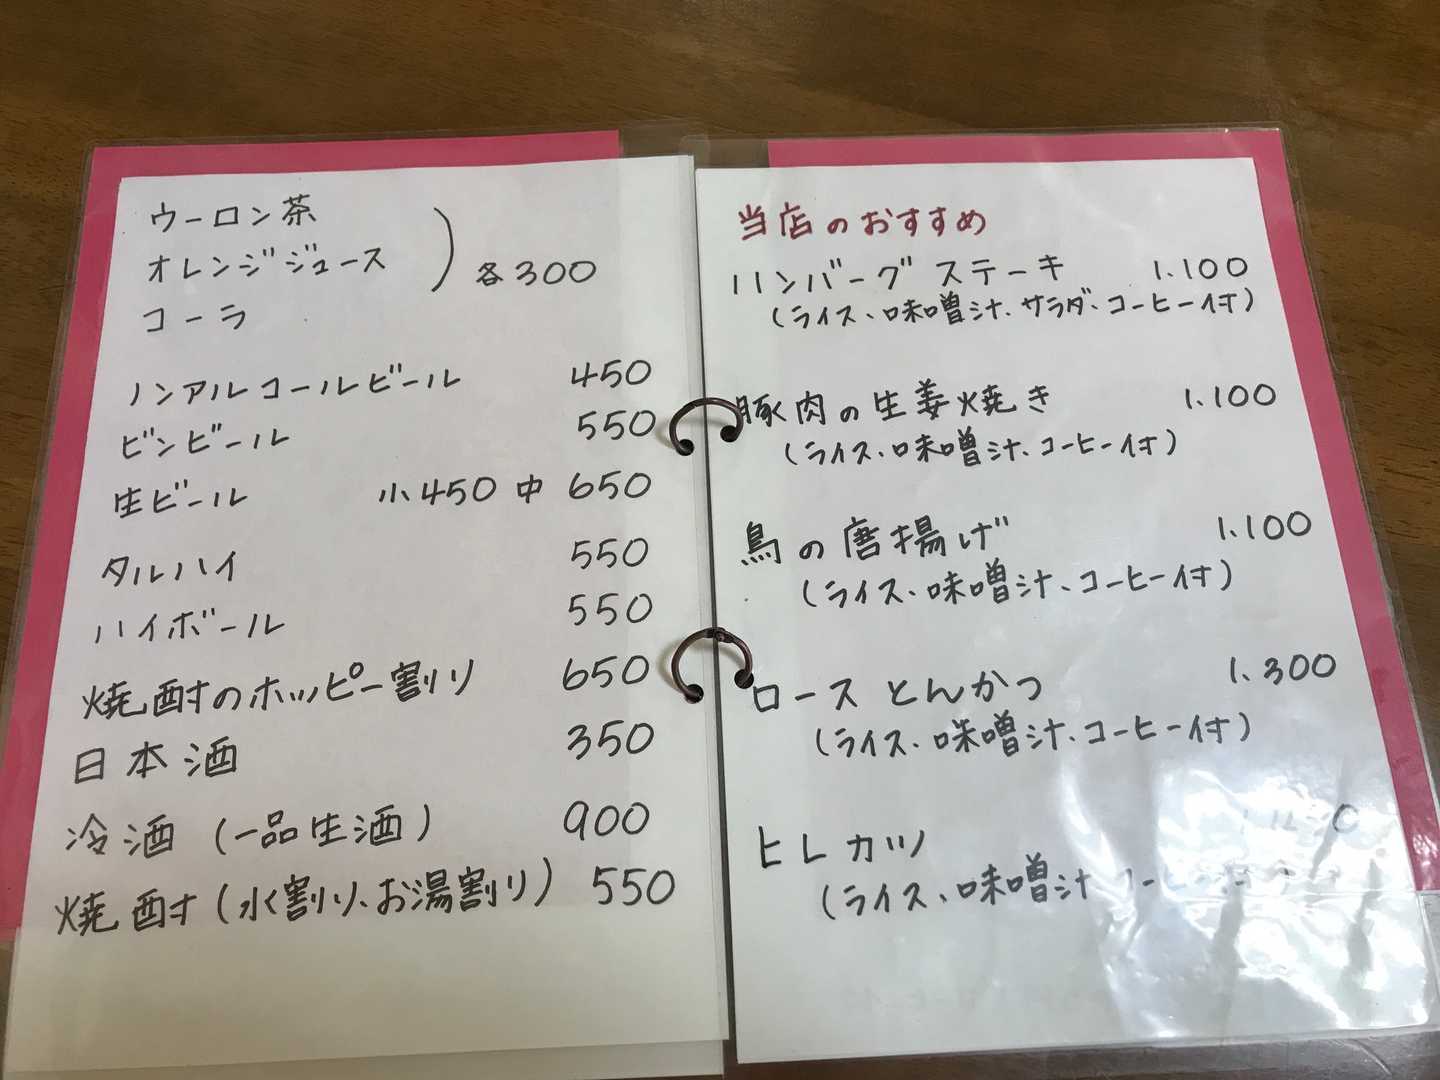 ウーロン茶
オレンジジュース
コーラ
各300
ノンアルコールビール 450
ビンビール 550
生ビール 小450 中 650
タルハイ 550
ハイボール 550
焼酎のホッピー割り 650
日本酒 350
冷酒 (一品生酒) 900
焼酎 (水割り、お湯割り) 550
当店のおすすめ
ハンバーグ ステーキ 1.100
(ライス、味噌汁、サラダ、コーヒー付)
豚肉の生姜焼き 1.100
(ライス、味噌汁、コーヒー付)
鳥の唐揚げ 1.100
(ライス、味噌汁、コーヒー付)
ロース とんかつ 1.300
(ライス、味噌汁、コーヒー付)
ヒレカツ
(ライス、味噌汁